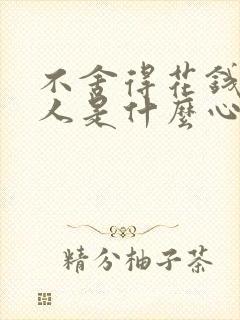 不舍得花錢
人是什麼心
精分柚子茶